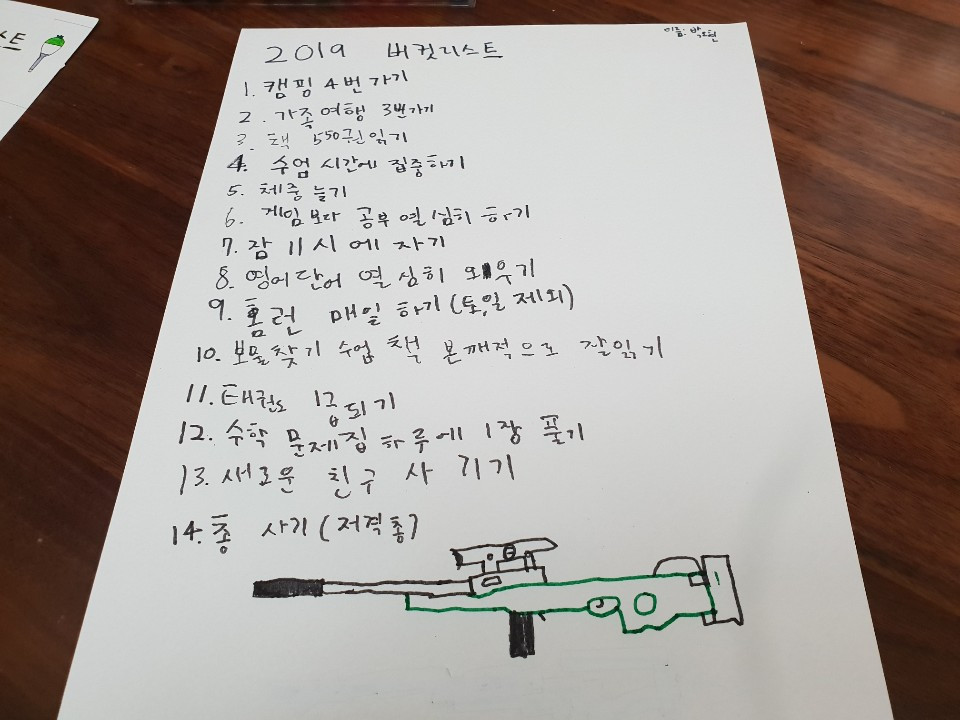 스트
이름: 박소현
2019 버컷리스트
1. 캠핑 4번 가기
2. 가족여행 3번가기
3. 책 550권 읽기
4. 수업 시간에 집중하기
5. 체중 늘기
6. 게임보다 공부 열심히 하기
7. 잠 11시에 자기
8. 영어단어 열심히 외우기
9. 홈런 매일 하기(토,일 제외)
10. 보물찾기 수업 책 본깨적으로 잘읽기
11. 태권도 1급되기
12. 수학 문제집 하루에 1장 풀기
13. 새로운 친구 사기기
14. 총 사기(저격총)